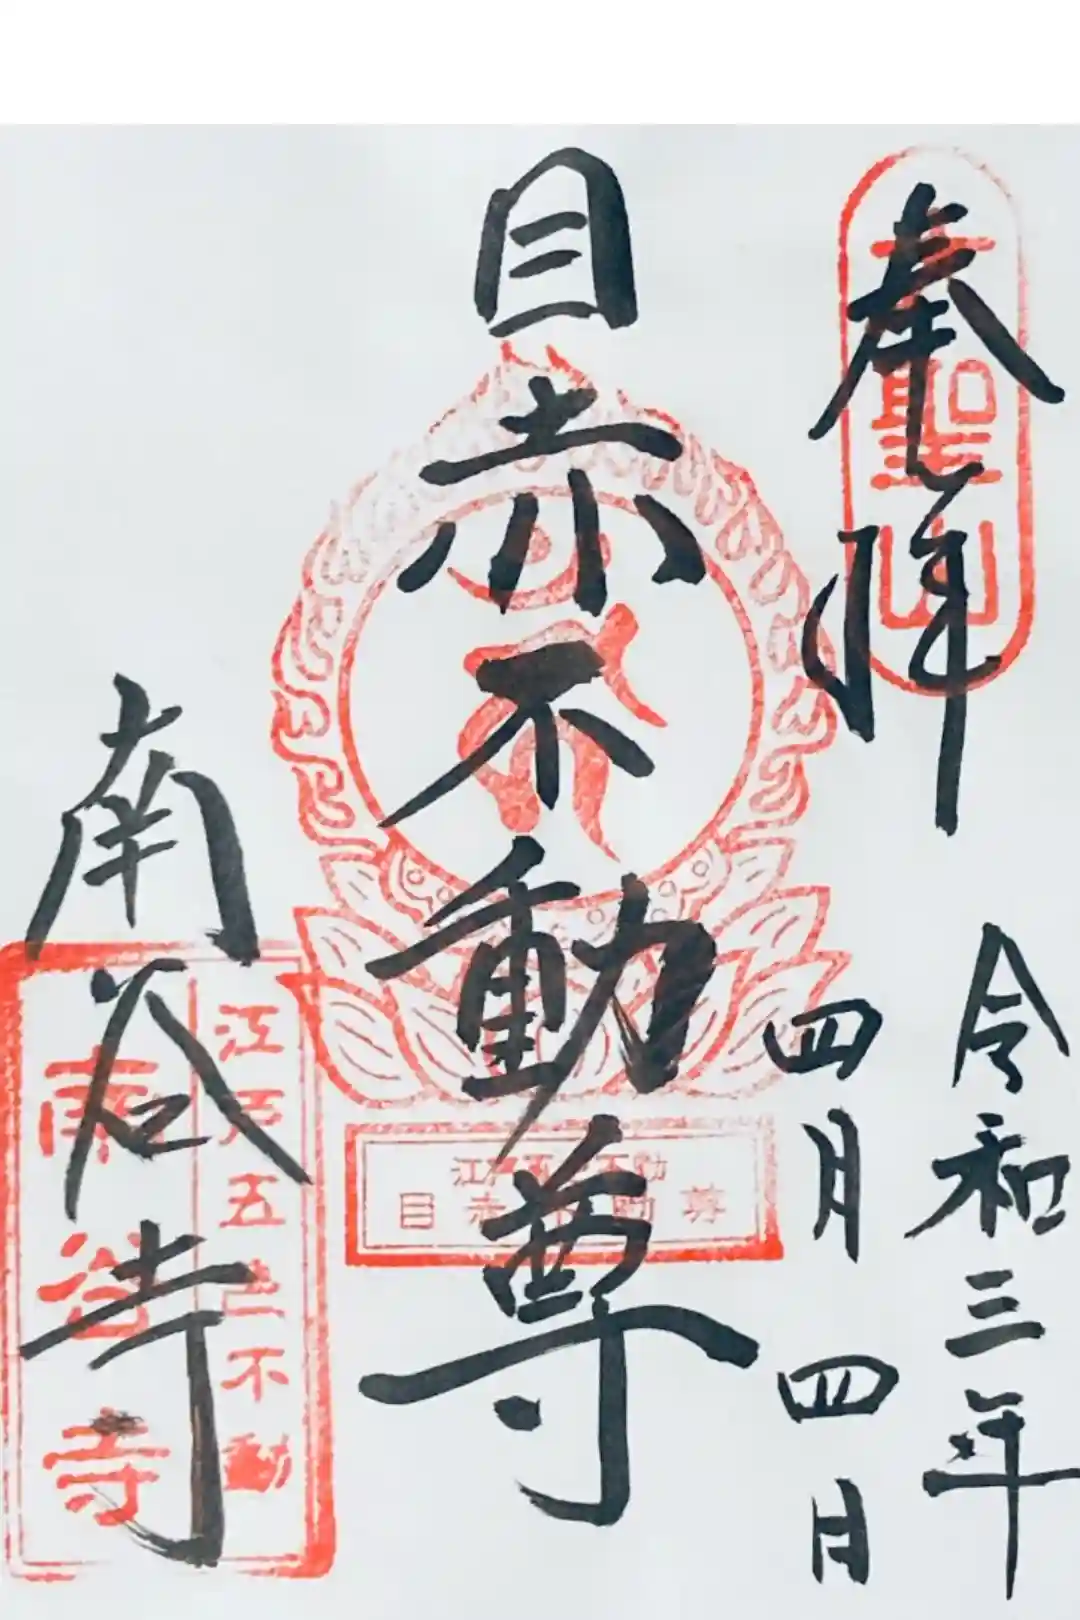 奉拝
東聖山
令和三年
四月四日
目赤不動尊
江戸五色不動
目赤不動尊
南谷寺
江戸五色不動
南谷寺